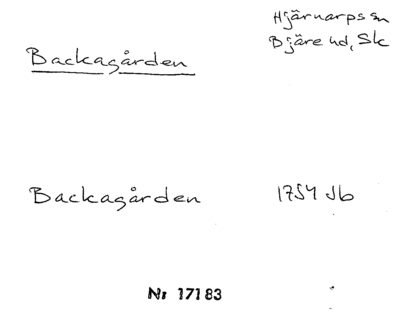 Hjärnarps sn
Backagården
Bjäre hd, Sk
Backagården 1754 Jb
Nr 17183